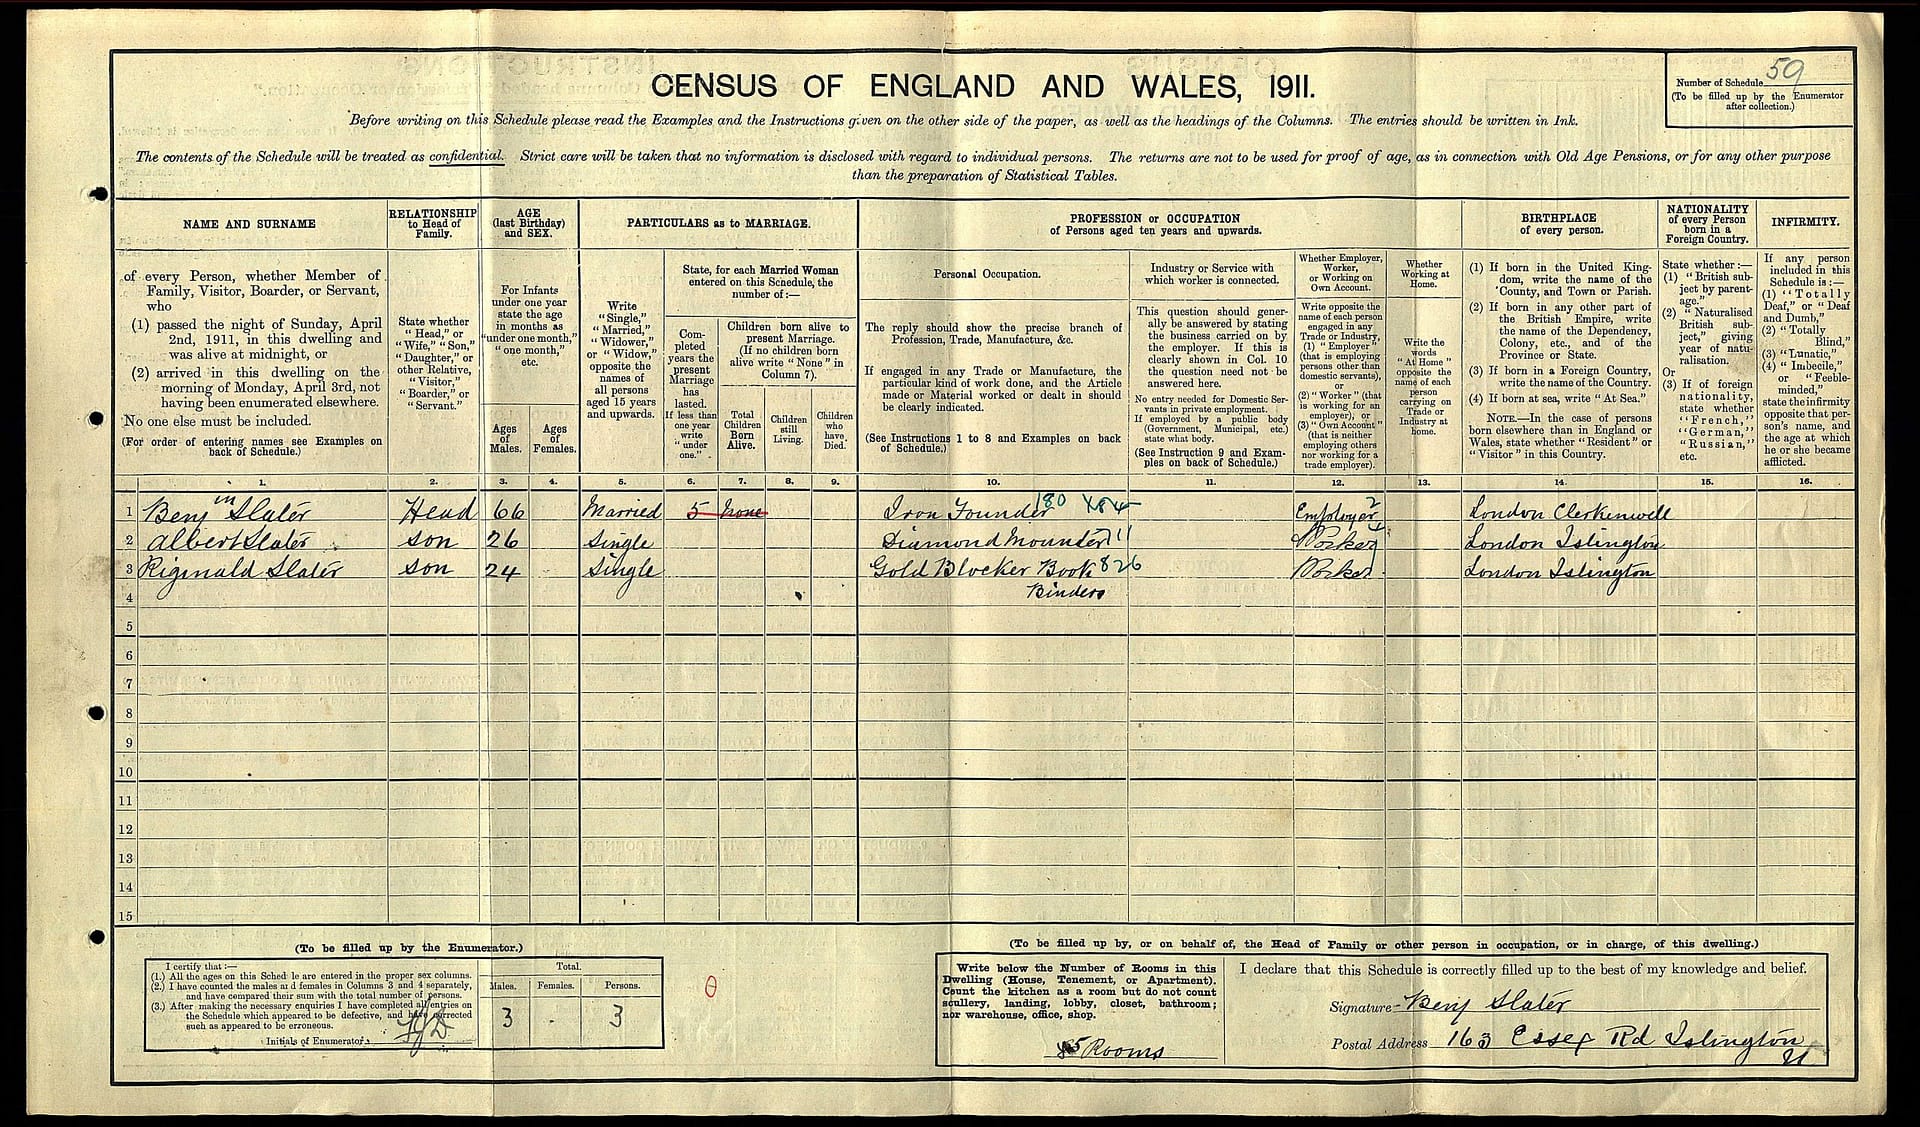 CENSUS OF ENGLAND AND WALES, 1911.
Number of Schedule 59
(To be filled up by the Enumerator
after collection.)
Before writing on this Schedule please read the Examples and the Instructions given on the other side of the paper, as well as the headings of the Columns. The entries should be written in Ink.
The contents of the Schedule will be treated as confidential. Strict care will be taken that no information is disclosed with regard to individual persons. The returns are not to be used for proof of age, as in connection with Old Age Pensions, or for any other purpose
than the preparation of Statistical Tables.
NAME AND SURNAME
of every Person, whether Member of
Family, Visitor, Boarder, or Servant,
who
(1) passed the night of Sunday, April
2nd, 1911, in this dwelling and
was alive at midnight, or
(2) arrived in this dwelling on the
morning of Monday, April 3rd, not
having been enumerated elsewhere.
No one else must be included.
(For order of entering names see Examples on
back of Schedule.)
RELATIONSHIP
to Head of
Family.
State whether
"Head," or
"Wife," "Son,"
"Daughter," or
other Relative,
"Visitor,"
"Boarder," or
"Servant."
AGE
(last Birthday)
and SEX.
For Infants
under one year
state the age
in months as
"under one month,"
"one month,"
etc.
Ages
of
Males.
Ages
of
Females.
PARTICULARS as to MARRIAGE.
Write
"Single,"
"Married,"
"Widower,"
or "Widow,"
opposite the
names of
all persons
aged 15 years
and upwards.
State, for each Married Woman
entered on this Schedule, the
number of:—
Com-
pleted
years the
present
Marriage
has
lasted.
If less than
one year
write
"under
one."
Children born alive to
present Marriage.
(If no children born
alive write "None" in
Column 7).
Total
Children
Born
Alive.
Children
still
Living.
Children
who
have
Died.
PROFESSION or OCCUPATION
of Persons aged ten years and upwards.
Personal Occupation.
The reply should show the precise branch of
Profession, Trade, Manufacture, &c.
If engaged in any Trade or Manufacture, the
particular kind of work done, and the Article
made or Material worked or dealt in should
be clearly indicated.
(See Instructions 1 to 8 and Examples on back
of Schedule.)
Industry or Service with
which worker is connected.
This question should gener-
ally be answered by stating
the business carried on by
the employer. If this is
clearly shown in Col. 10
the question need not be
answered here.
No entry needed for Domestic Ser-
vants in private employment.
If employed by a public body
(Government, Municipal, etc.)
state what body.
(See Instruction 9 and Exam-
ples on back of Schedule.)
Whether Employer,
Worker,
or Working on
Own Account.
Write opposite the
name of each person
engaged in any
Trade or Industry,
(1) "Employer"
(that is employing
persons other than
domestic servants),
or
(2) "Worker" (that
is working for an
employer), or
(3) "Own Account"
(that is neither
employing others
nor working for a
trade employer).
Whether
Working at
Home.
Write the
words
"At Home"
opposite the
name of each
person
carrying on
Trade or
Industry at
home.
BIRTHPLACE
of every person.
(1) If born in the United King-
dom, write the name of the
County, and Town or Parish.
(2) If born in any other part of
the British Empire, write
the name of the Dependency,
Colony, etc., and of the
Province or State.
(3) If born in a Foreign Country,
write the name of the Country.
(4) If born at sea, write "At Sea."
NOTE.—In the case of persons
born elsewhere than in England or
Wales, state whether "Resident" or
"Visitor" in this Country.
NATIONALITY
of every Person
born in a
Foreign Country.
State whether:—
(1) "British sub-
ject by parent-
age."
(2) "Naturalised
British sub-
ject," giving
year of natu-
ralisation.
Or
(3) If of foreign
nationality,
state whether
"French,"
"German,"
"Russian,"
etc.
INFIRMITY.
If any person
included in this
Schedule is:—
(1) "Totally
Deaf," or "Deaf
and Dumb,"
(2) "Totally
Blind,"
(3) "Lunatic,"
(4) "Imbecile,"
or "Feeble-
minded,"
state the infirmity
opposite that per-
son's name, and
the age at which
he or she became
afflicted.
1. 2. 3. 4. 5. 6. 7. 8. 9. 10. 11. 12. 13. 14. 15. 16.
1 Benjin Slater Head 66 Married 5 None Iron Founder 180 Employer 2 London Clerkenwell
2 Albert Slater son 26 Single Diamond Mounter 711 Worker London Islington
3 Riginald Slater son 24 Single Gold Blocker Book 826 Worker London Islington
4 Binders
5
6
7
8
9
10
11
12
13
14
15
(To be filled up by the Enumerator.)
I certify that:—
(1.) All the ages on this Schedule are entered in the proper sex columns.
(2.) I have counted the males and females in Columns 3 and 4 separately,
and have compared their sum with the total number of persons.
(3.) After making the necessary enquiries I have completed all entries on
the Schedule which appeared to be defective, and have corrected
such as appeared to be erroneous.
Initials of Enumerator
Total.
Males. Females. Persons.
3 - 3
(To be filled up by, or on behalf of, the Head of Family or other person in occupation, or in charge, of this dwelling.)
Write below the Number of Rooms in this
Dwelling (House, Tenement, or Apartment).
Count the kitchen as a room but do not count
scullery, landing, lobby, closet, bathroom;
nor warehouse, office, shop.
5 Rooms
I declare that this Schedule is correctly filled up to the best of my knowledge and belief.
Signature Benj Slater
Postal Address 163 Essex Rd Islington
N